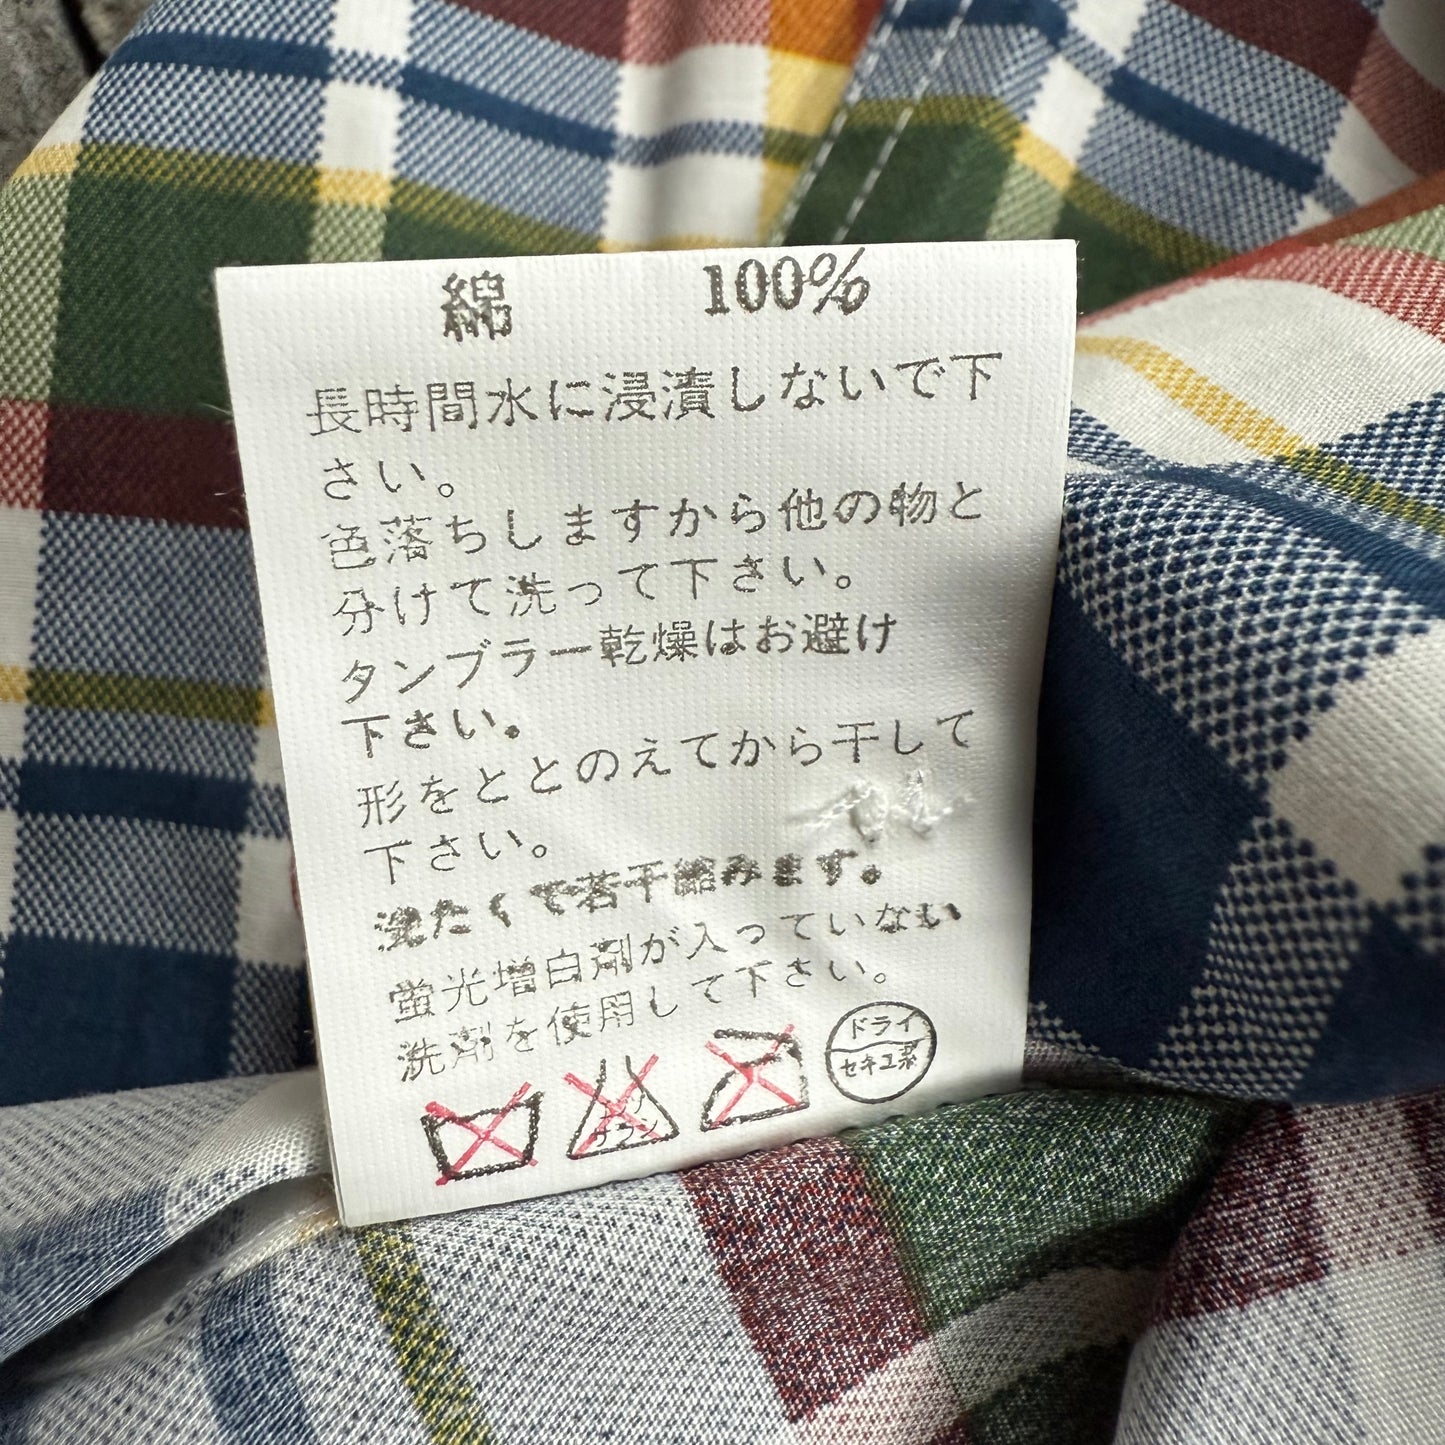 綿 100%
長時間水に浸漬しないで下
さい。
色落ちしますから他の物と
分けて洗って下さい。
タンブラー乾燥はお避け
下さい。
形をととのえてから干して
下さい。
洗たくで若干縮みます。
蛍光増白剤が入っていない
洗剤を使用して下さい。
サラシ
ドライ
セキユ系